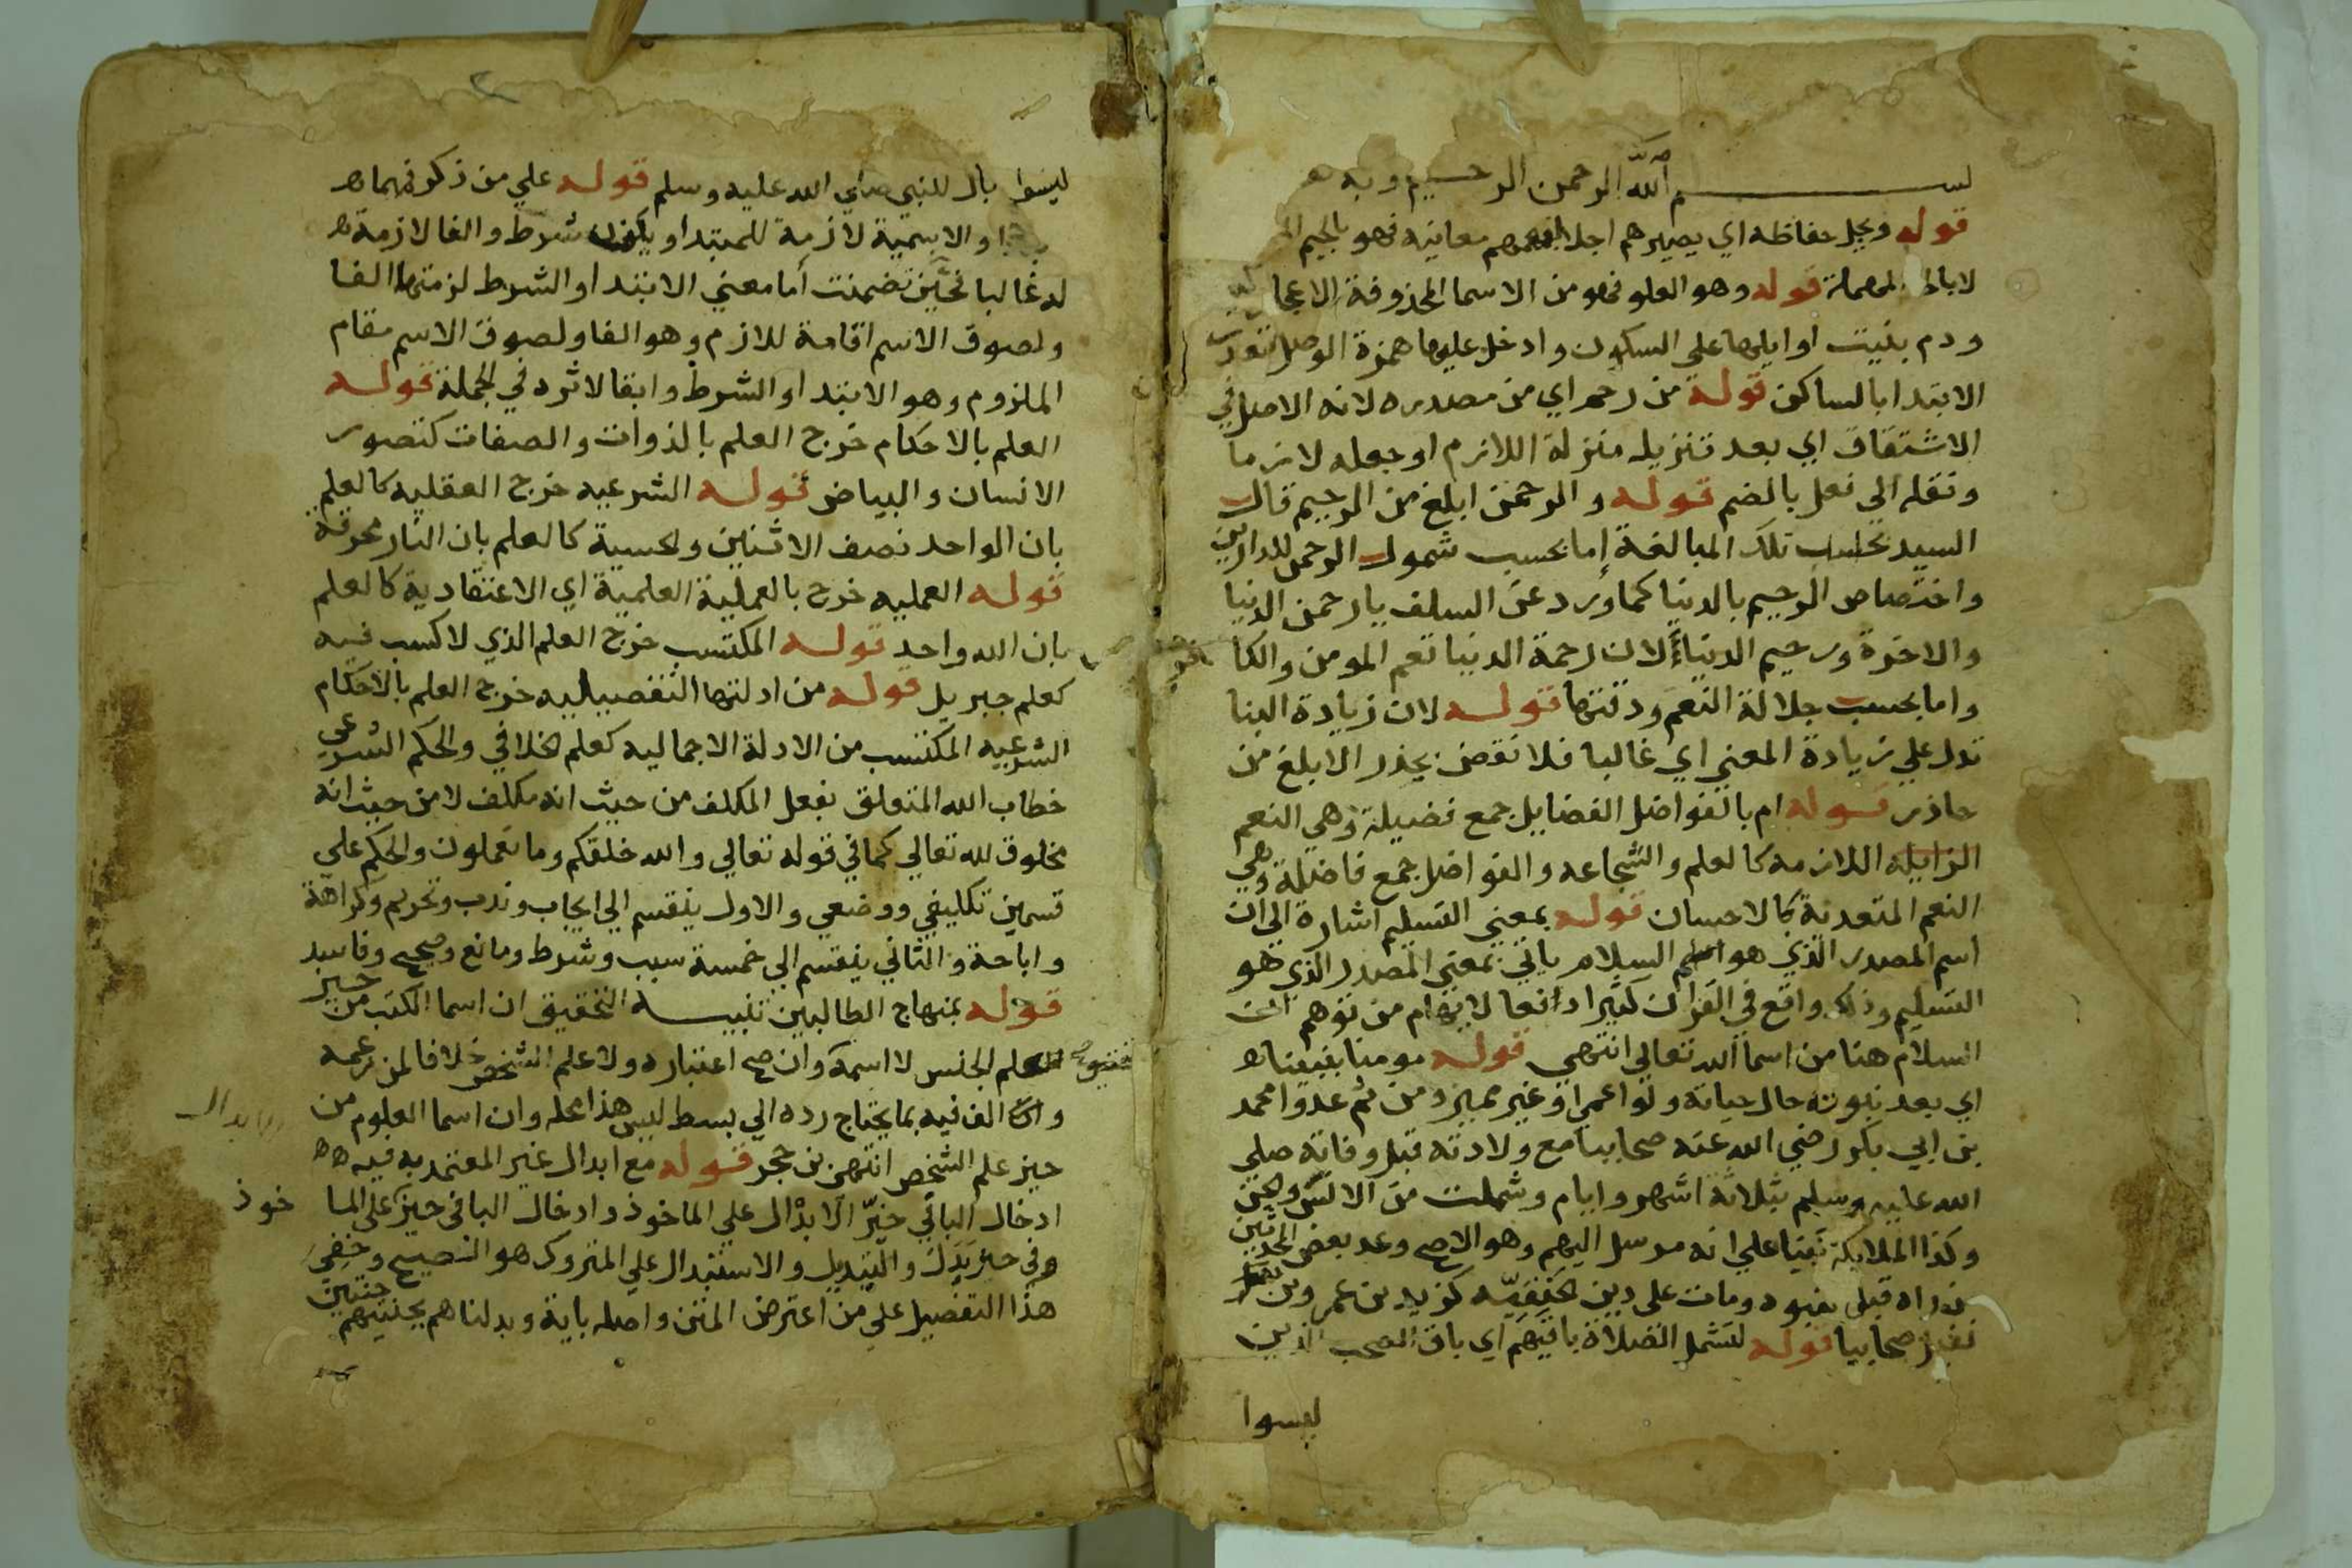 بســـــــم الله الرحمن الرحيم وبه
قوله ويجل حفاظه اي يصيرهم اجلا لفهمهم معانيه فهو بالجيم
لا بالحا المهملة قوله وهو العلو فهو من الاسما المحذوفة الاعجاز كيد
ودم بنيت اوايلها علي السكون وادخل عليها همزة الوصل لتعذر
الابتدا بالساكن قوله من رحم اي من مصدره لانه الاصل في
الاشتقاق اي بعد تنزيله منزلة اللازم او جعله لازما
ونقله الي فعل بالضم قوله والرحمن ابلغ من الرحيم قال
السيد بحسب تلك المبالغة اما بحسب شمول الرحمن للدارين
واختصاص الرحيم بالدنيا كما ورد عن السلف يا رحمن الدنيا
والاخرة ورحيم الدنيا لان رحمة الدنيا تعم المومن والكا
واما بحسب جلالة النعم ودقتها قوله لان زيادة البنا
تدل علي زيادة المعني اي غالبا فلا نقض بحذر الابلغ من
حاذر قوله ام بالفواضل الفضايل جمع فضيلة وهي النعم
الزايلة اللازمة كالعلم والشجاعة والفواضل جمع فاضلة وهي
النعم المتعدية كالاحسان قوله بمعني التسليم اشارة الي ان
اسم المصدر الذي هو السلام ياتي بمعني المصدر الذي هو
التسليم وذلك واقع في القران كثيرا دافعا لايهام من توهم ان
السلام هنا من اسما الله تعالي انتهي قوله مومنا بنبينا
اي بعد نبوته حال حياته ولو اعمي او غير مميز ومن ثم عدوا محمد
بن ابي بكر رضي الله عنه صحابيا مع ولادته قبل وفاته صلي
الله عليه وسلم بثلاثة اشهر وايام وشملت من الانس والجن
وكذا الملايكة بنينا علي انه مرسل اليهم وهو الاصح وعد بعض المحدثين
من راه قبل نبوه ومات علي دين الحنيفيه كزيد بن عمرو بن نفيل
صحابيا قوله لتشمل الصلاة باقيهم اي باق الصحب الذين
ليسوا
ليسوا بال للنبي صلي الله عليه وسلم قوله علي من ذكر فيهما
والاسمية لازمة للمبتدا ويكون شرط والفا لازمة
له غالبا فحين تضمنت أما معني الابتدا والشرط لزمتها الفا
ولصوق الاسم اقامة للازم وهو الفا ولصوق الاسم مقام
الملزوم وهو الابتدا والشرط وابقا لاثره في الجملة قوله
العلم بالاحكام خرج العلم بالذوات والصفات كتصور
الانسان والبياض قوله الشرعيه خرج العقليه كالعلم
بان الواحد نصف الاثنين والحسية كالعلم بان النار محرقة
قوله العمليه خرج بالعملية العلمية اي الاعتقادية كالعلم
بان الله واحد قوله المكتسب خرج العلم الذي لا كسب فيه
كعلم جبريل قوله من ادلتها التفصيليه خرج العلم بالاحكام
الشرعيه المكتسب من الادلة الاجماليه كعلم الخلافي والحكم الشرعي
خطاب الله المتعلق بفعل المكلف من حيث انه مكلف لا من حيث انه
مخلوق لله تعالي كما في قوله تعالي والله خلقكم وما تعملون والحكم علي
قسمين تكليفي ووضعي والاول ينقسم الي ايجاب وندب وتحريم وكراهة
واباحة والثاني ينقسم الي خمسة سبب وشرط ومانع وصحيح وفاسد
قوله بمنهاج الطالبين تنبيه التحقيق ان اسما الكتب من حيز
علم الجنس لا اسمه وان صح اعتباره ولا علم الشخص خلافا لمن زعمه
وان الف فيه بما يحتاج رده الي بسط ليس هذا محله وان اسما العلوم من
الابدال
حيز علم الشخص انتهي بن حجر قوله مع ابدال غير المعتمد به فيه
ادخال الباقي حيز الابدال علي الماخوذ وادخال البا في حيز علي الما
خوذ
وفي حيز بدل والتبديل والاستبدال علي المتروك هو الفصيح وخفي
هذا التفصيل علي من اعترض المتن واصله باية وبدلناهم بجنتيهم جنتين